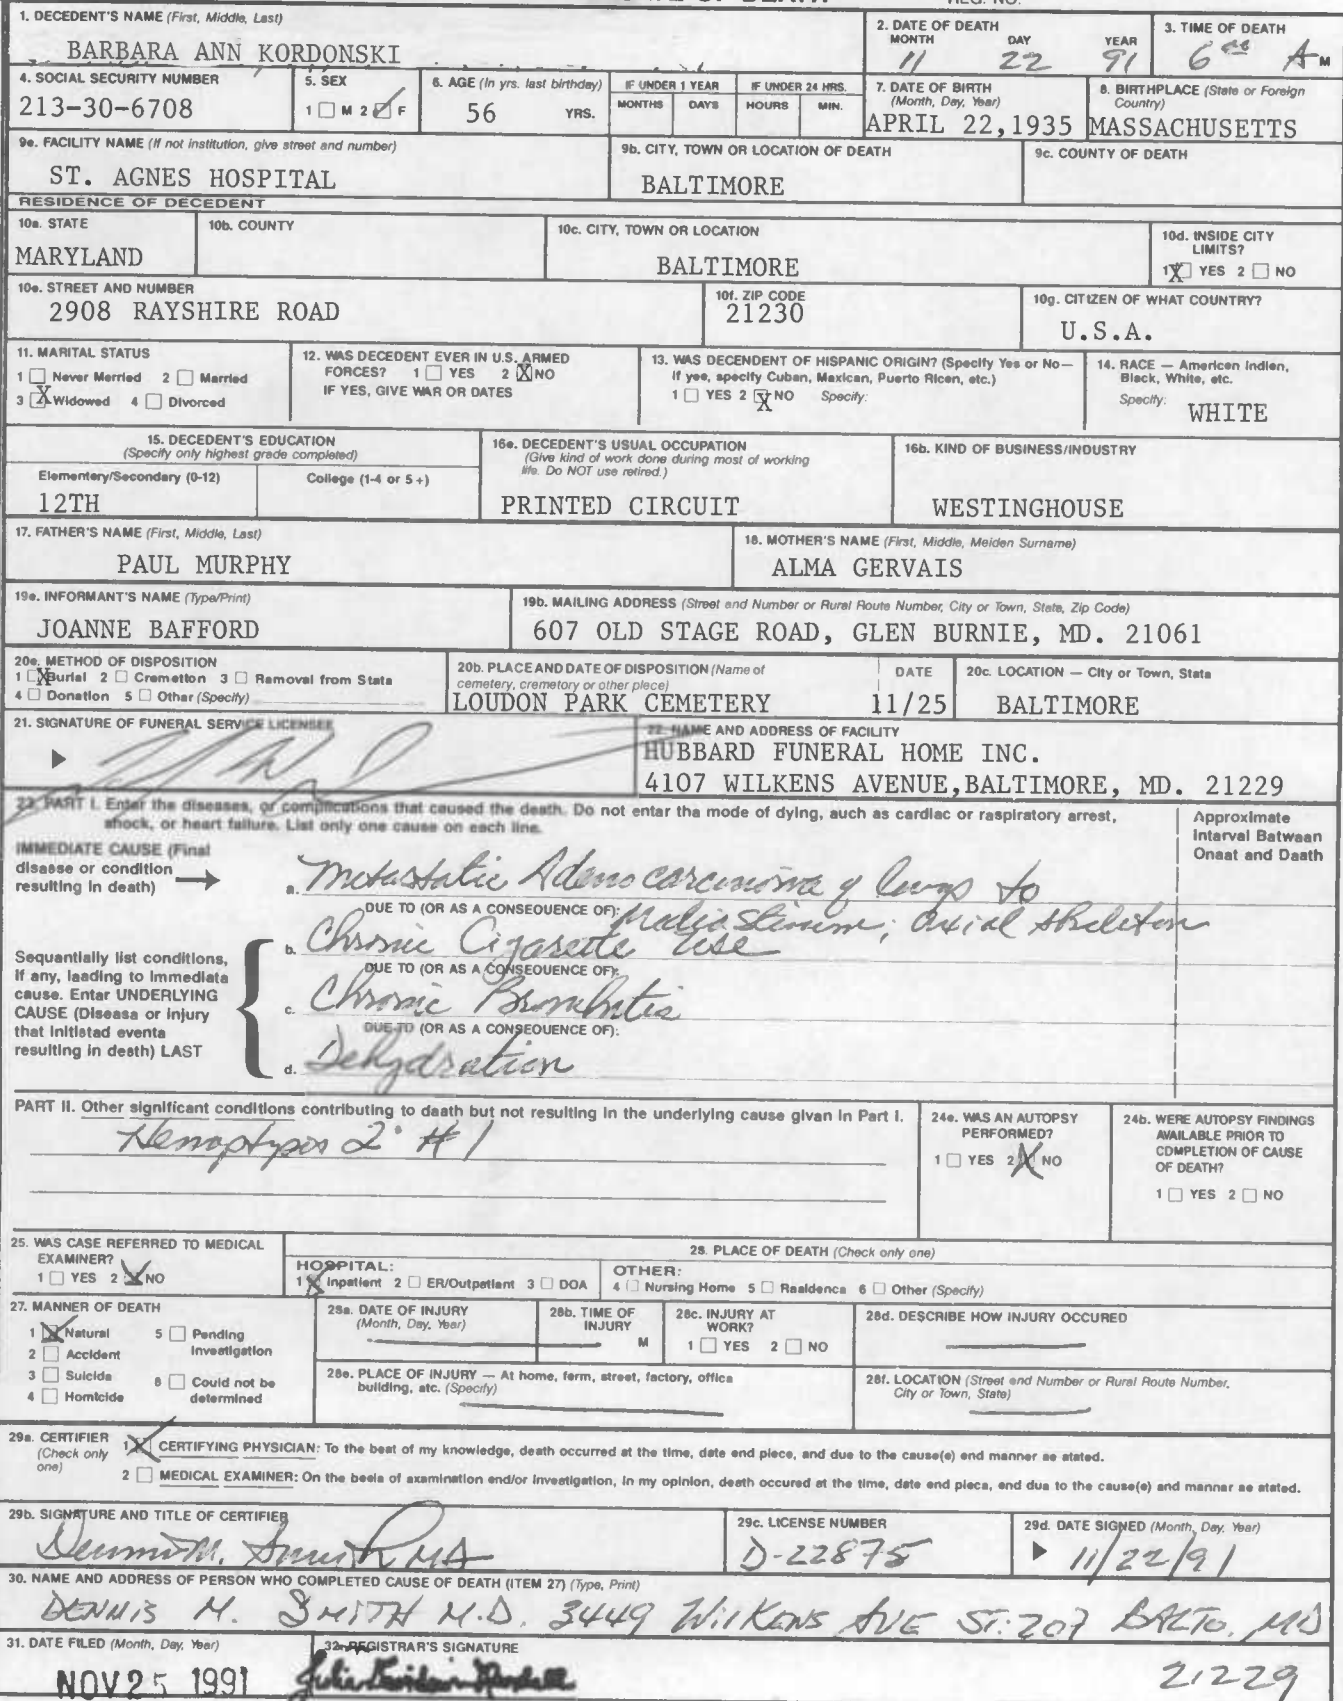 1. DECEDENT'S NAME (First, Middle, Last)
BARBARA ANN KORDONSKI
2. DATE OF DEATH
MONTH DAY YEAR
11 22 91
3. TIME OF DEATH
6 A M
4. SOCIAL SECURITY NUMBER
213-30-6708
5. SEX
1 M 2 F
6. AGE (In yrs. last birthday)
56 YRS.
IF UNDER 1 YEAR
MONTHS DAYS
IF UNDER 24 HRS.
HOURS MIN.
7. DATE OF BIRTH
(Month, Day, Year)
APRIL 22,1935
8. BIRTHPLACE (State or Foreign
Country)
MASSACHUSETTS
9a. FACILITY NAME (If not institution, give street and number)
ST. AGNES HOSPITAL
9b. CITY, TOWN OR LOCATION OF DEATH
BALTIMORE
9c. COUNTY OF DEATH
RESIDENCE OF DECEDENT
10a. STATE
MARYLAND
10b. COUNTY
10c. CITY, TOWN OR LOCATION
BALTIMORE
10d. INSIDE CITY
LIMITS?
1 X YES 2 NO
10e. STREET AND NUMBER
2908 RAYSHIRE ROAD
10f. ZIP CODE
21230
10g. CITIZEN OF WHAT COUNTRY?
U.S.A.
11. MARITAL STATUS
1 Never Married 2 Married
3 X Widowed 4 Divorced
12. WAS DECEDENT EVER IN U.S. ARMED
FORCES? 1 YES 2 X NO
IF YES, GIVE WAR OR DATES
13. WAS DECENDENT OF HISPANIC ORIGIN? (Specify Yes or No—
If yes, specify Cuban, Mexican, Puerto Rican, etc.)
1 YES 2 X NO Specify:
14. RACE — American Indian,
Black, White, etc.
Specify: WHITE
15. DECEDENT'S EDUCATION
(Specify only highest grade completed)
Elementary/Secondary (0-12) College (1-4 or 5+)
12TH
16a. DECEDENT'S USUAL OCCUPATION
(Give kind of work done during most of working
life. Do NOT use retired.)
PRINTED CIRCUIT
16b. KIND OF BUSINESS/INDUSTRY
WESTINGHOUSE
17. FATHER'S NAME (First, Middle, Last)
PAUL MURPHY
18. MOTHER'S NAME (First, Middle, Maiden Surname)
ALMA GERVAIS
19a. INFORMANT'S NAME (Type/Print)
JOANNE BAFFORD
19b. MAILING ADDRESS (Street and Number or Rural Route Number, City or Town, State, Zip Code)
607 OLD STAGE ROAD, GLEN BURNIE, MD. 21061
20a. METHOD OF DISPOSITION
1 X Burial 2 Cremation 3 Removal from State
4 Donation 5 Other (Specify)
20b. PLACE AND DATE OF DISPOSITION (Name of
cemetery, crematory or other place)
LOUDON PARK CEMETERY
DATE
11/25
20c. LOCATION — City or Town, State
BALTIMORE
21. SIGNATURE OF FUNERAL SERVICE LICENSEE
22. NAME AND ADDRESS OF FACILITY
HUBBARD FUNERAL HOME INC.
4107 WILKENS AVENUE,BALTIMORE, MD. 21229
23. PART I. Enter the diseases, or complications that caused the death. Do not enter the mode of dying, such as cardiac or respiratory arrest,
shock, or heart failure. List only one cause on each line.
Approximate
Interval Between
Onset and Death
IMMEDIATE CAUSE (Final
disease or condition
resulting in death)
a. Metastatic Adenocarcinoma of lungs to
DUE TO (OR AS A CONSEQUENCE OF): Mediastinum; axial skeleton
b. Chronic Cigarette Use
DUE TO (OR AS A CONSEQUENCE OF):
c. Chronic Bronchitis
DUE TO (OR AS A CONSEQUENCE OF):
d. Dehydration
Sequentially list conditions,
if any, leading to immediate
cause. Enter UNDERLYING
CAUSE (Disease or injury
that initiated events
resulting in death) LAST
PART II. Other significant conditions contributing to death but not resulting in the underlying cause given in Part I.
Hemoptysis 2° #1
24a. WAS AN AUTOPSY
PERFORMED?
1 YES 2 X NO
24b. WERE AUTOPSY FINDINGS
AVAILABLE PRIOR TO
COMPLETION OF CAUSE
OF DEATH?
1 YES 2 NO
25. WAS CASE REFERRED TO MEDICAL
EXAMINER?
1 YES 2 X NO
26. PLACE OF DEATH (Check only one)
HOSPITAL:
1 X Inpatient 2 ER/Outpatient 3 DOA
OTHER:
4 Nursing Home 5 Residence 6 Other (Specify)
27. MANNER OF DEATH
1 X Natural 5 Pending
Investigation
2 Accident
3 Suicide 6 Could not be
4 Homicide determined
28a. DATE OF INJURY
(Month, Day, Year)
28b. TIME OF
INJURY
M
28c. INJURY AT
WORK?
1 YES 2 NO
28d. DESCRIBE HOW INJURY OCCURED
28e. PLACE OF INJURY — At home, farm, street, factory, office
building, etc. (Specify)
28f. LOCATION (Street and Number or Rural Route Number,
City or Town, State)
29a. CERTIFIER
(Check only
one)
1 X CERTIFYING PHYSICIAN: To the best of my knowledge, death occurred at the time, date and place, and due to the cause(s) and manner as stated.
2 MEDICAL EXAMINER: On the basis of examination and/or investigation, in my opinion, death occured at the time, date and place, and due to the cause(s) and manner as stated.
29b. SIGNATURE AND TITLE OF CERTIFIER
Dennis M. Smith MD
29c. LICENSE NUMBER
D-22875
29d. DATE SIGNED (Month, Day, Year)
11/22/91
30. NAME AND ADDRESS OF PERSON WHO COMPLETED CAUSE OF DEATH (ITEM 27) (Type, Print)
DENNIS M. SMITH M.D. 3449 WILKENS AVE ST: 207 BALTO. MD
21229
31. DATE FILED (Month, Day, Year)
NOV 25 1991
32. REGISTRAR'S SIGNATURE